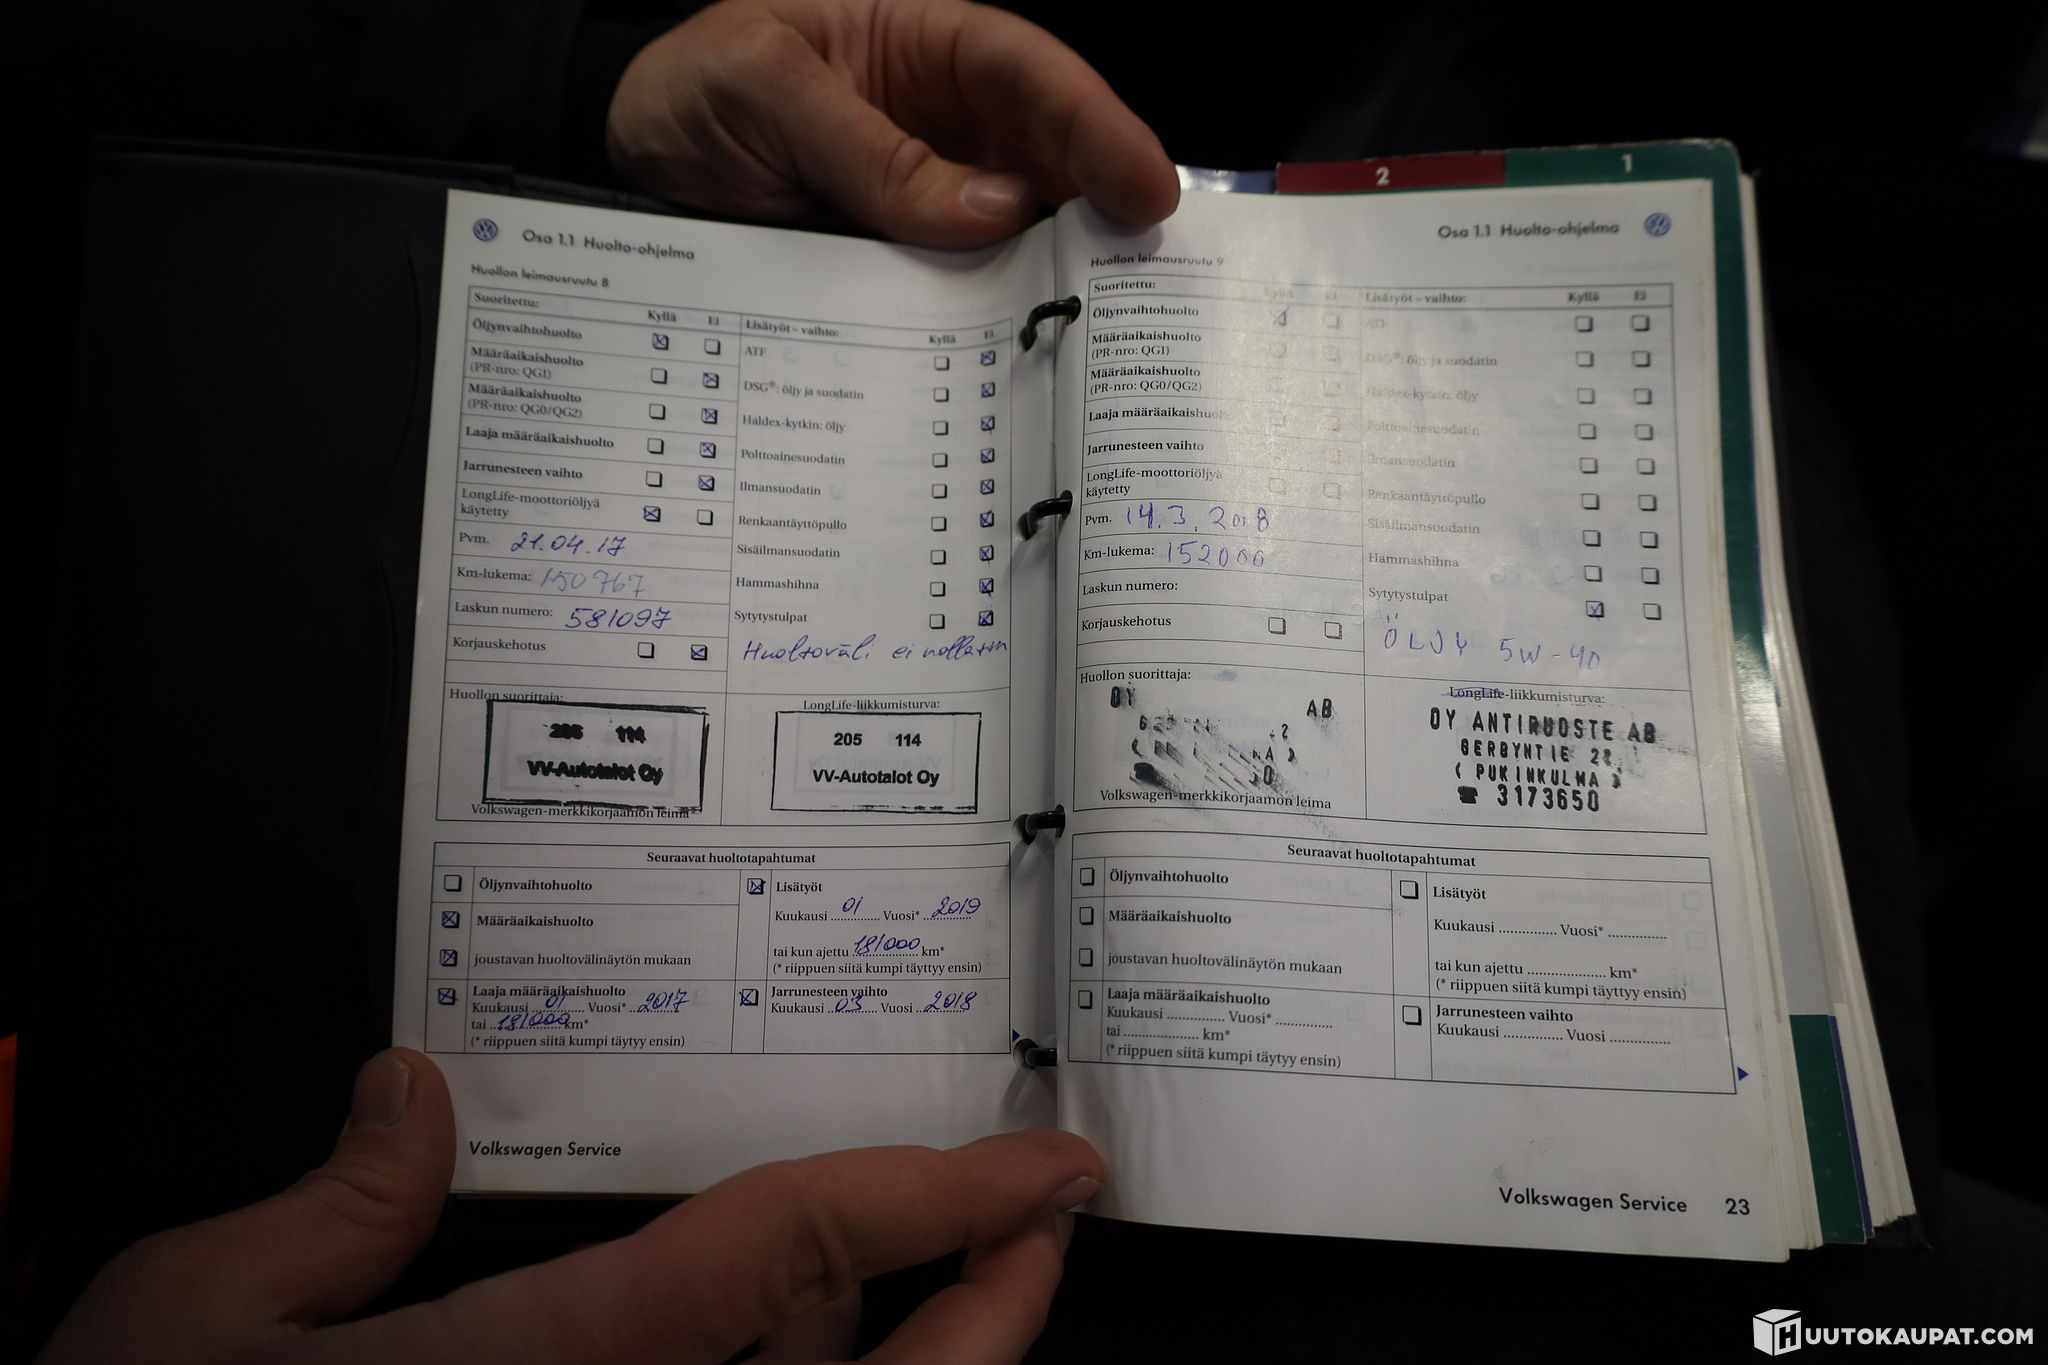 2
1
Osa 1.1 Huolto-ohjelma
Huollon leimausruutu 8
Suoritettu:
Kyllä Ei
Öljynvaihtohuolto
Määräaikaishuolto
(PR-nro: QG1)
Määräaikaishuolto
(PR-nro: QG0/QG2)
Laaja määräaikaishuolto
Jarrunesteen vaihto
LongLife-moottoriöljyä
käytetty
Pvm. 21.04.17
Km-lukema: 150767
Laskun numero: 581097
Korjauskehotus
Lisätyöt – vaihto:
Kyllä Ei
ATF
DSG®: öljy ja suodatin
Haldex-kytkin: öljy
Polttoainesuodatin
Ilmansuodatin
Renkaantäyttöpullo
Sisäilmansuodatin
Hammashihna
Sytytystulpat
Huoltoväli ei
Huollon suorittaja:
205 114
VV-Autotalot Oy
Volkswagen-merkkikorjaamon leima
LongLife-liikkumisturva:
205 114
VV-Autotalot Oy
Seuraavat huoltotapahtumat
Öljynvaihtohuolto
Määräaikaishuolto
joustavan huoltovälinäytön mukaan
Laaja määräaikaishuolto
Kuukausi 01 Vuosi* 2017
tai 181000 km*
(* riippuen siitä kumpi täytyy ensin)
Lisätyöt
Kuukausi 01 Vuosi* 2019
tai kun ajettu 181000 km*
(* riippuen siitä kumpi täyttyy ensin)
Jarrunesteen vaihto
Kuukausi 03 Vuosi 2018
Volkswagen Service
Osa 1.1 Huolto-ohjelma
Huollon leimausruutu 9
Suoritettu:
Kyllä Ei
Öljynvaihtohuolto
Määräaikaishuolto
(PR-nro: QG1)
Määräaikaishuolto
(PR-nro: QG0/QG2)
Laaja määräaikaishuolto
Jarrunesteen vaihto
LongLife-moottoriöljyä
käytetty
Pvm. 14.3.2018
Km-lukema: 152000
Laskun numero:
Korjauskehotus
Lisätyöt – vaihto:
Kyllä Ei
ATF
DSG®: öljy ja suodatin
Haldex-kytkin: öljy
Polttoainesuodatin
Ilmansuodatin
Renkaantäyttöpullo
Sisäilmansuodatin
Hammashihna
Sytytystulpat
ÖLJY 5W-40
Huollon suorittaja:
OY AB
Volkswagen-merkkikorjaamon leima
LongLife-liikkumisturva:
OY ANTIRUOSTE AB
GERBYNTIE 22
( PUKINKULMA )
☎ 3173650
Seuraavat huoltotapahtumat
Öljynvaihtohuolto
Määräaikaishuolto
joustavan huoltovälinäytön mukaan
Laaja määräaikaishuolto
Kuukausi .............. Vuosi* ..............
tai .................. km*
(* riippuen siitä kumpi täytyy ensin)
Lisätyöt
Kuukausi .............. Vuosi* ..............
tai kun ajettu .................. km*
(* riippuen siitä kumpi täyttyy ensin)
Jarrunesteen vaihto
Kuukausi .............. Vuosi ..............
Volkswagen Service 23
HUUTOKAUPAT.COM